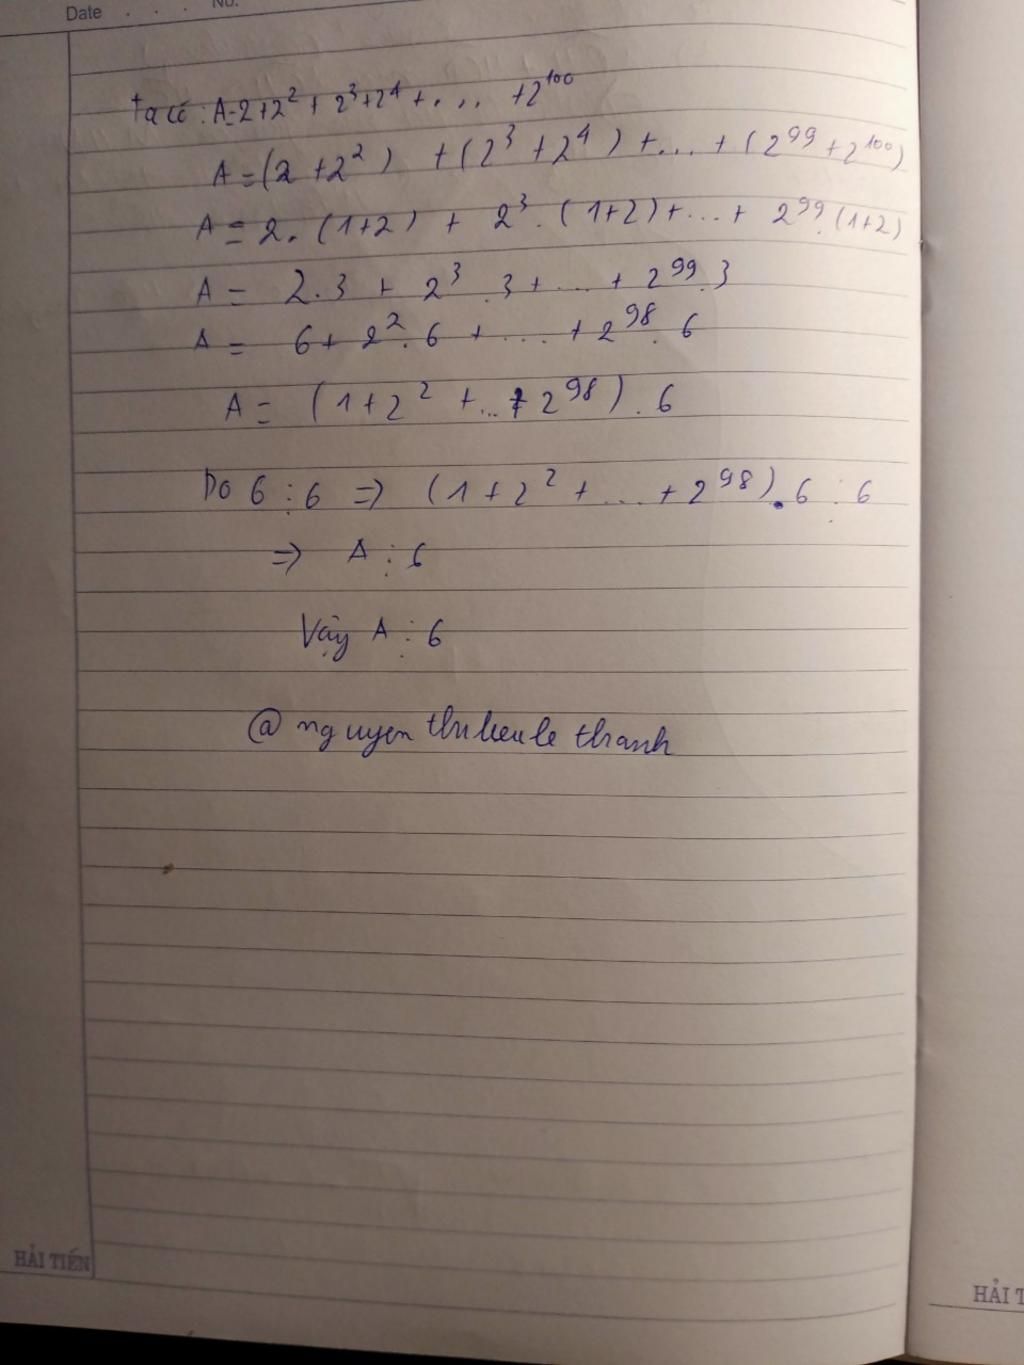 Date . . . No.
Ta có : A = 2 + 2² + 2³ + 2⁴ + ... + 2¹⁰⁰
A = (2 + 2²) + (2³ + 2⁴) + ... + (2⁹⁹ + 2¹⁰⁰)
A = 2 . (1+2) + 2³ . (1+2) + ... + 2⁹⁹ . (1+2)
A = 2.3 + 2³ . 3 + ... + 2⁹⁹ . 3
A = 6 + 2² . 6 + ... + 2⁹⁸ . 6
A = (1 + 2² + ... + 2⁹⁸) . 6
Do 6 ⋮ 6 => (1 + 2² + ... + 2⁹⁸) . 6 ⋮ 6
=> A ⋮ 6
Vậy A ⋮ 6
@ nguyen thi thanh
HẢI TIẾN
HẢI T